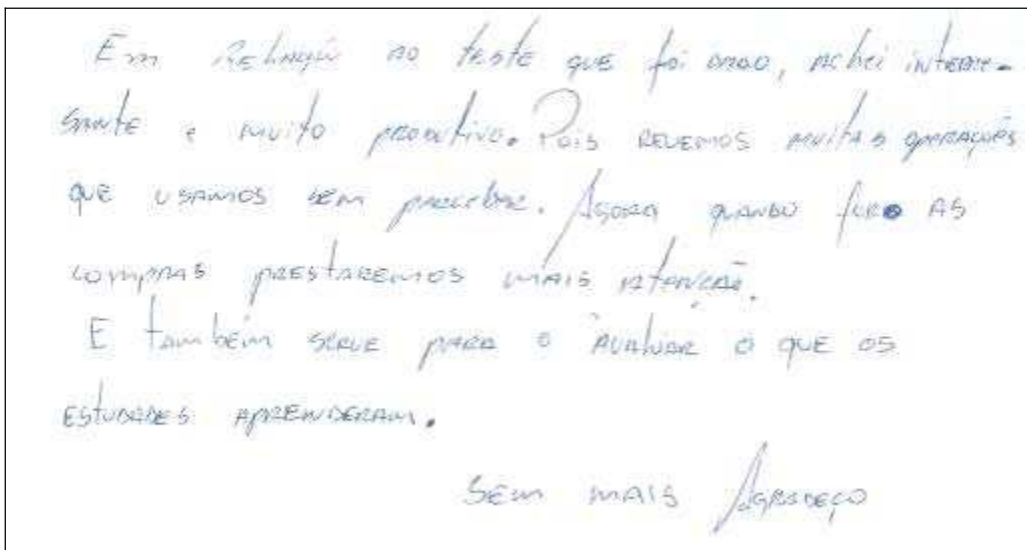 Em Relação ao teste que foi dado, achei interes-
sante e muito produtivo. Pois revemos muitas operações
que usamos sem perceber. Agora quando for as
compras prestaremos mais atenção.
E também serve para o avaluar o que os
estudades aprenderam.
Sem mais Agradeço